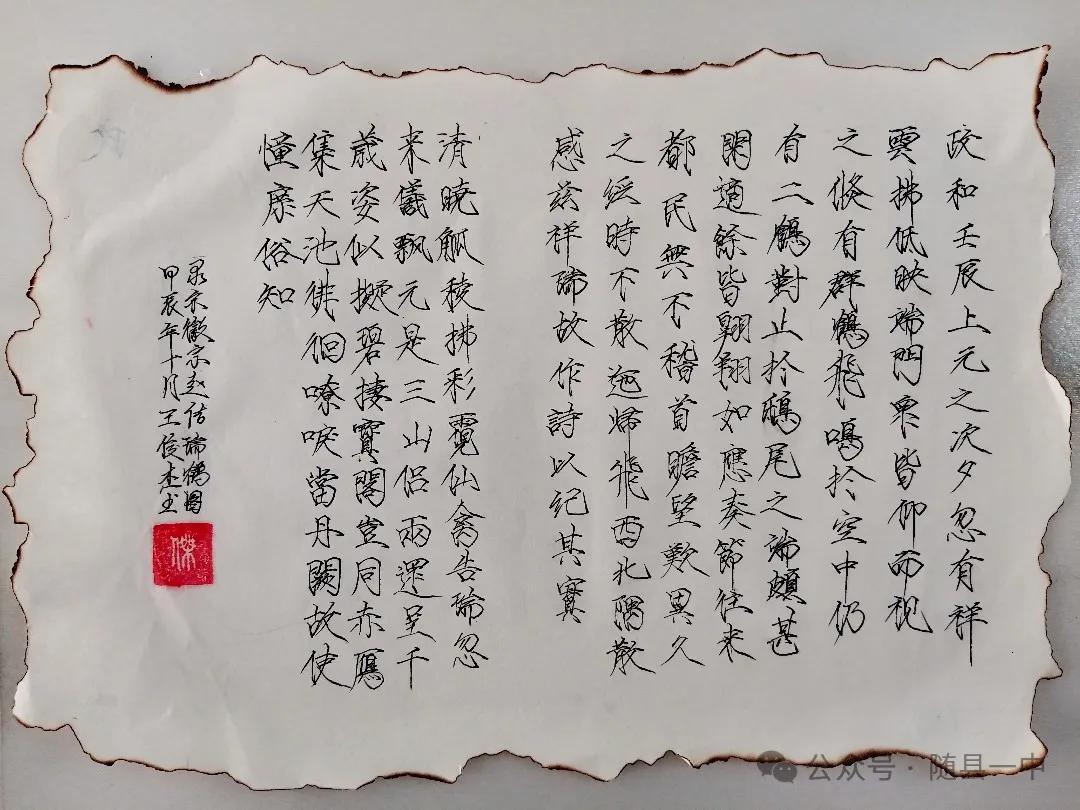 政和壬辰上元之次夕忽有祥
雲拂低映端門衆皆仰而視
之倏有群鶴飛鳴於空中仍
有二鶴對止於鴟尾之端頗甚
閑適餘皆翱翔如應奏節往来
都民無不稽首瞻望歎異久
之經時不散迤㷌歸飛西北隅散
感兹祥瑞故作詩以紀其實
清曉觚稜拂彩霓仙禽告瑞忽
来儀飄元是三山侣兩兩還呈千
歲姿似擬碧棲寳閣豈同赤鴈
集天池徘徊嘹唳當丹闕故使
憧庶俗知
录宋徽宗赵佶瑞鹤图
甲辰年十月王俊杰书
傑
公众号·随县一中